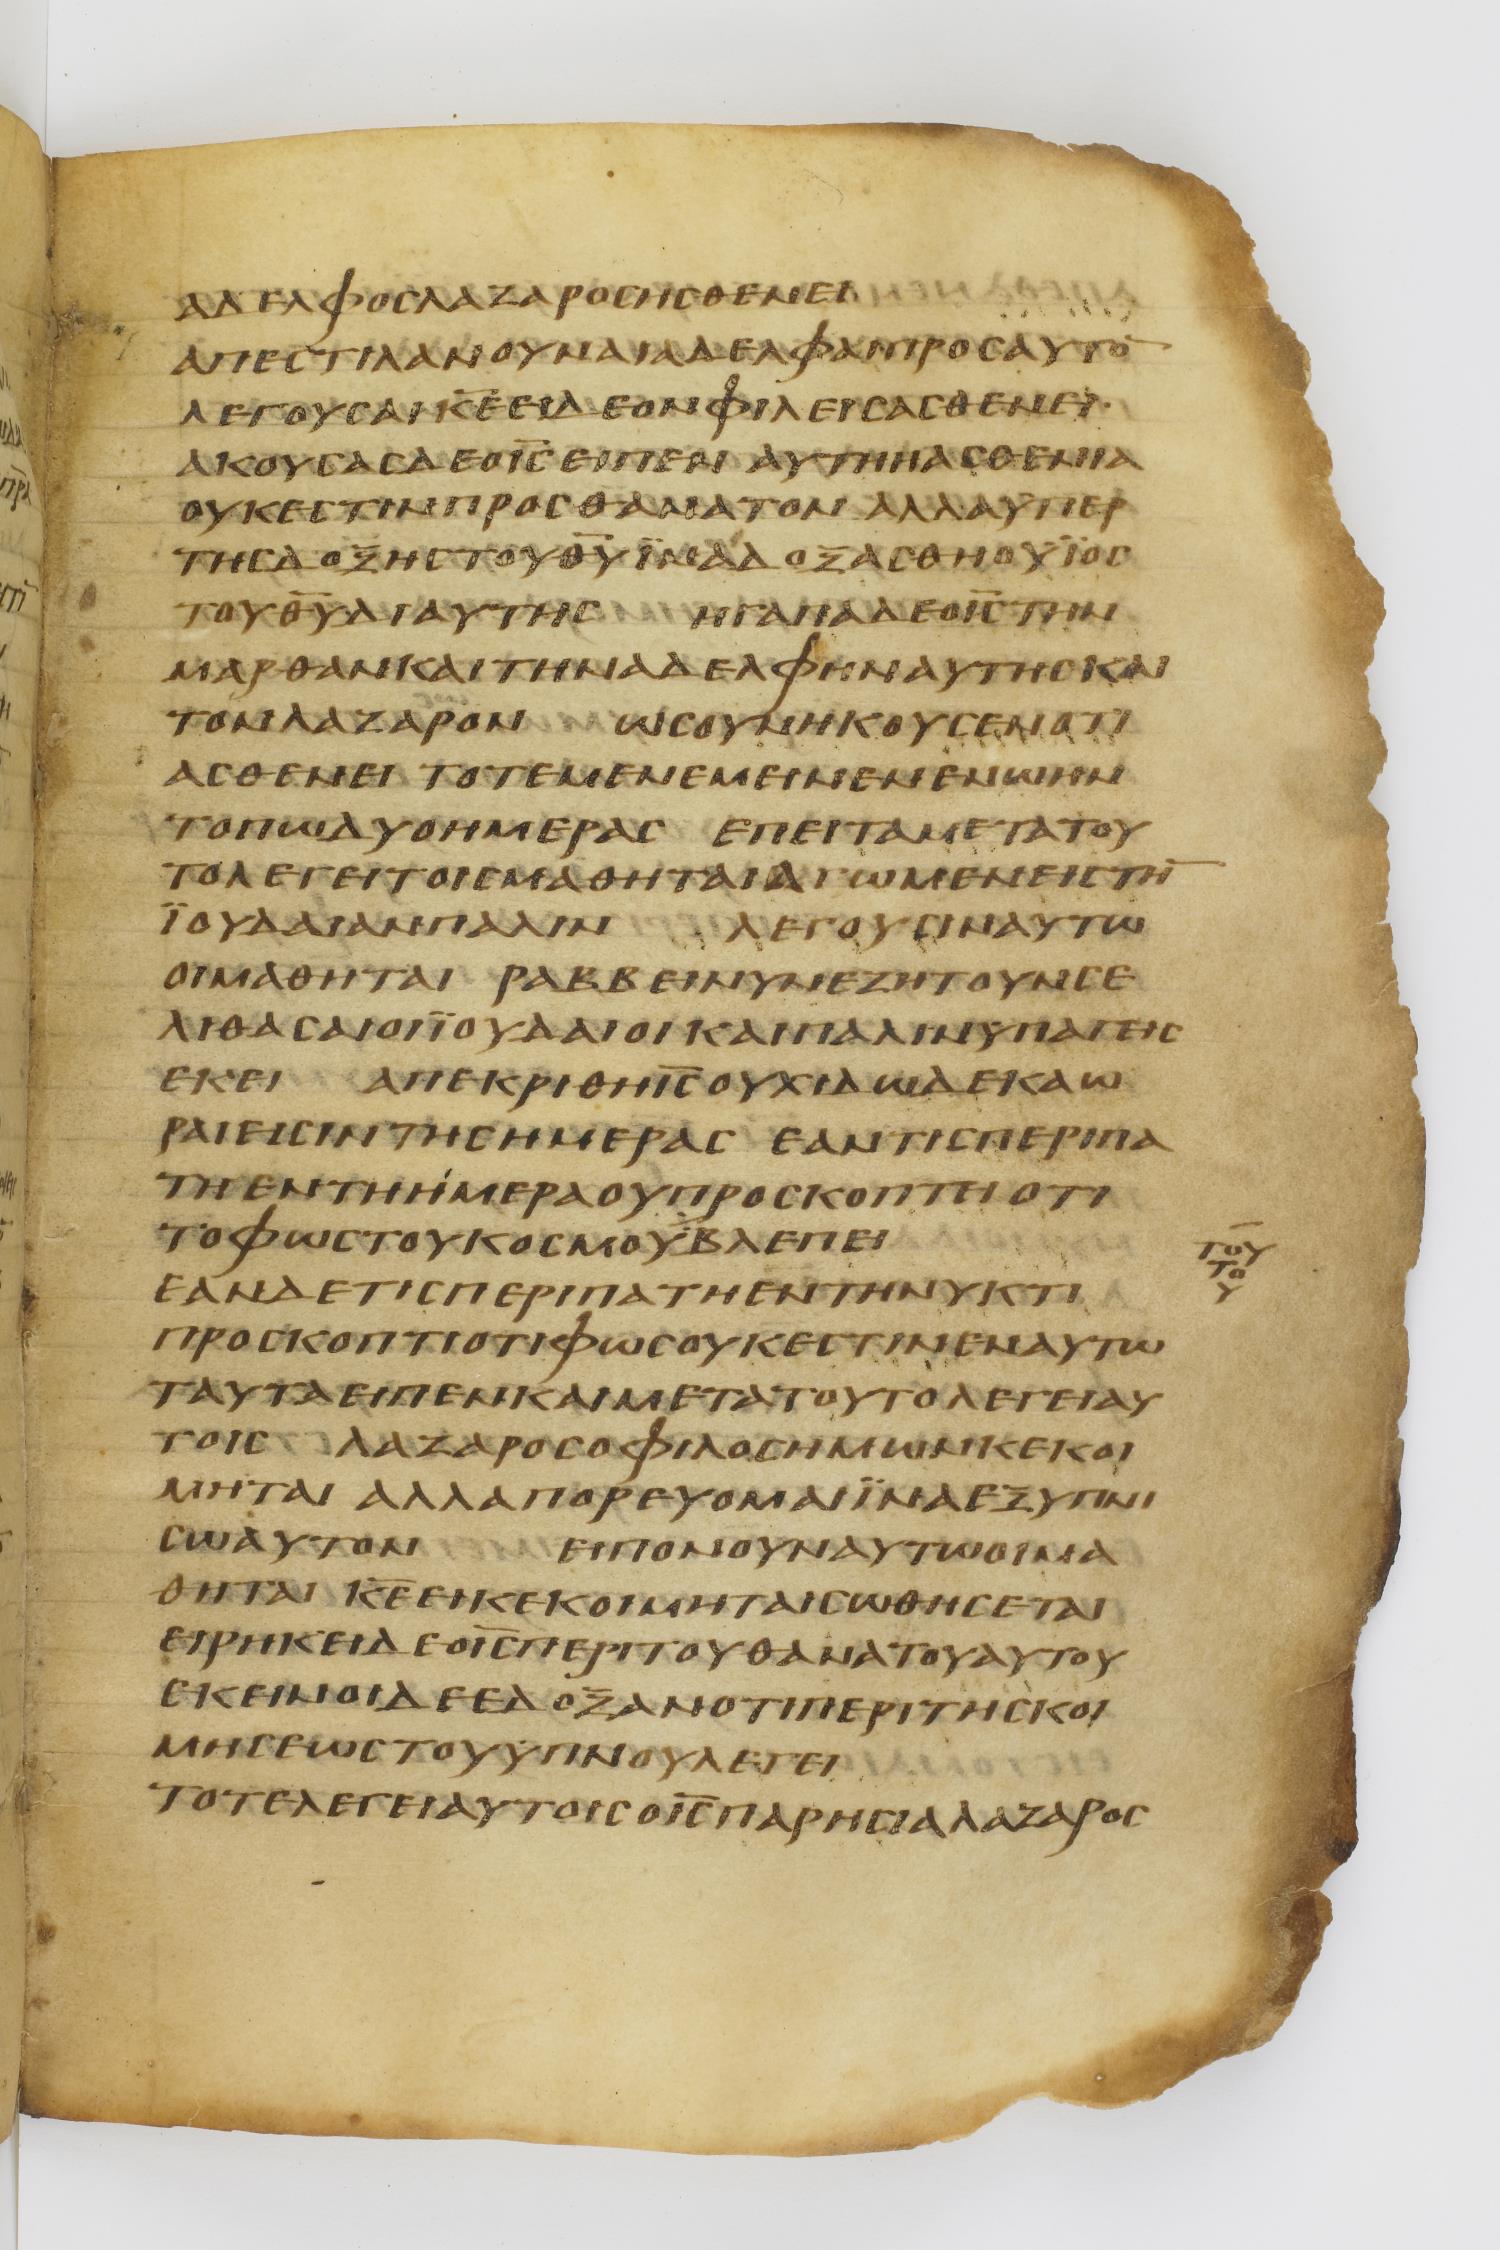 ΑΔΕΛΦΟΣΛΑΖΑΡΟΣΗΣΘΕΝΕΙ
ΑΠΕΣΤΙΛΑΝΟΥΝΑΙΑΔΕΛΦΑΙΠΡΟΣΑΥΤΟ̅
ΛΕΓΟΥΣΑΙΚ̅Ε̅ΕΙΔΕΟΝΦΙΛΕΙΣΑΣΘΕΝΕΙ·
ΑΚΟΥΣΑΣΔΕΟΙ̅Σ̅ΕΙΠΕΝ ΑΥΤΗΗΑΣΘΕΝΙΑ
ΟΥΚΕΣΤΙΝΠΡΟΣΘΑΝΑΤΟΝ ΑΛΛΑΥΠΕΡ
ΤΗΣΔΟΞΗΣΤΟΥΘ̅Υ̅ΪΝΑΔΟΞΑΣΘΗΟΥΪΟΣ
ΤΟΥΘ̅Υ̅ΔΙΑΥΤΗΣ ΗΓΑΠΑΔΕΟΙ̅Σ̅ΤΗΝ
ΜΑΡΘΑΝΚΑΙΤΗΝΑΔΕΛΦΗΝΑΥΤΗΣΚΑΙ
ΤΟΝΛΑΖΑΡΟΝ ΩΣΟΥΝΗΚΟΥΣΕΝΟΤΙ
ΑΣΘΕΝΕΙ ΤΟΤΕΜΕΝΕΜΕΙΝΕΝΕΝΩΗΝ
ΤΟΠΩΔΥΟΗΜΕΡΑΣ ΕΠΕΙΤΑΜΕΤΑΤΟΥ
ΤΟΛΕΓΕΙΤΟΙΣΜΑΘΗΤΑΙΑΓΩΜΕΝΕΙΣΤΗ̅
ΪΟΥΔΑΙΑΝΠΑΛΙΝ ΛΕΓΟΥΣΙΝΑΥΤΩ
ΟΙΜΑΘΗΤΑΙ ΡΑΒΒΕΙΝΥΝΕΖΗΤΟΥΝΣΕ
ΛΙΘΑΣΑΙΟΙΪΟΥΔΑΙΟΙΚΑΙΠΑΛΙΝΥΠΑΓΕΙΣ
ΕΚΕΙ ΑΠΕΚΡΙΘΗΙ̅Σ̅ΟΥΧΙΔΩΔΕΚΑΩ
ΡΑΙΕΙΣΙΝΤΗΣΗΜΕΡΑΣ ΕΑΝΤΙΣΠΕΡΙΠΑ
ΤΗΕΝΤΗΗΜΕΡΑΟΥΠΡΟΣΚΟΠΤΕΙΟΤΙ
ΤΟΦΩΣΤΟΥΚΟΣΜΟΥΒΛΕΠΕΙ
ΤΟΥ
ΤΟ
Υ
ΕΑΝΔΕΤΙΣΠΕΡΙΠΑΤΗΕΝΤΗΝΥΚΤΙ
ΠΡΟΣΚΟΠΤΙΟΤΙΦΩΣΟΥΚΕΣΤΙΝΕΝΑΥΤΩ
ΤΑΥΤΑΕΙΠΕΝΚΑΙΜΕΤΑΤΟΥΤΟΛΕΓΕΙΑΥ
ΤΟΙΣ ΛΑΖΑΡΟΣΟΦΙΛΟΣΗΜΩΝΚΕΚΟΙ
ΜΗΤΑΙ ΑΛΛΑΠΟΡΕΥΟΜΑΙΪΝΑΕΞΥΠΝΙ
ΣΩΑΥΤΟΝ ΕΙΠΟΝΟΥΝΑΥΤΩΟΙΜΑ
ΘΗΤΑΙ Κ̅Ε̅ΕΙΚΕΚΟΙΜΗΤΑΙΣΩΘΗΣΕΤΑΙ
ΕΙΡΗΚΕΙΔΕΟΙ̅Σ̅ΠΕΡΙΤΟΥΘΑΝΑΤΟΥΑΥΤΟΥ
ΕΚΕΙΝΟΙΔΕΕΔΟΞΑΝΟΤΙΠΕΡΙΤΗΣΚΟΙ
ΜΗΣΕΩΣΤΟΥΫΠΝΟΥΛΕΓΕΙ
ΤΟΤΕΛΕΓΕΙΑΥΤΟΙΣΟΙ̅Σ̅ΠΑΡΗΣΙΑΛΑΖΑΡΟΣ